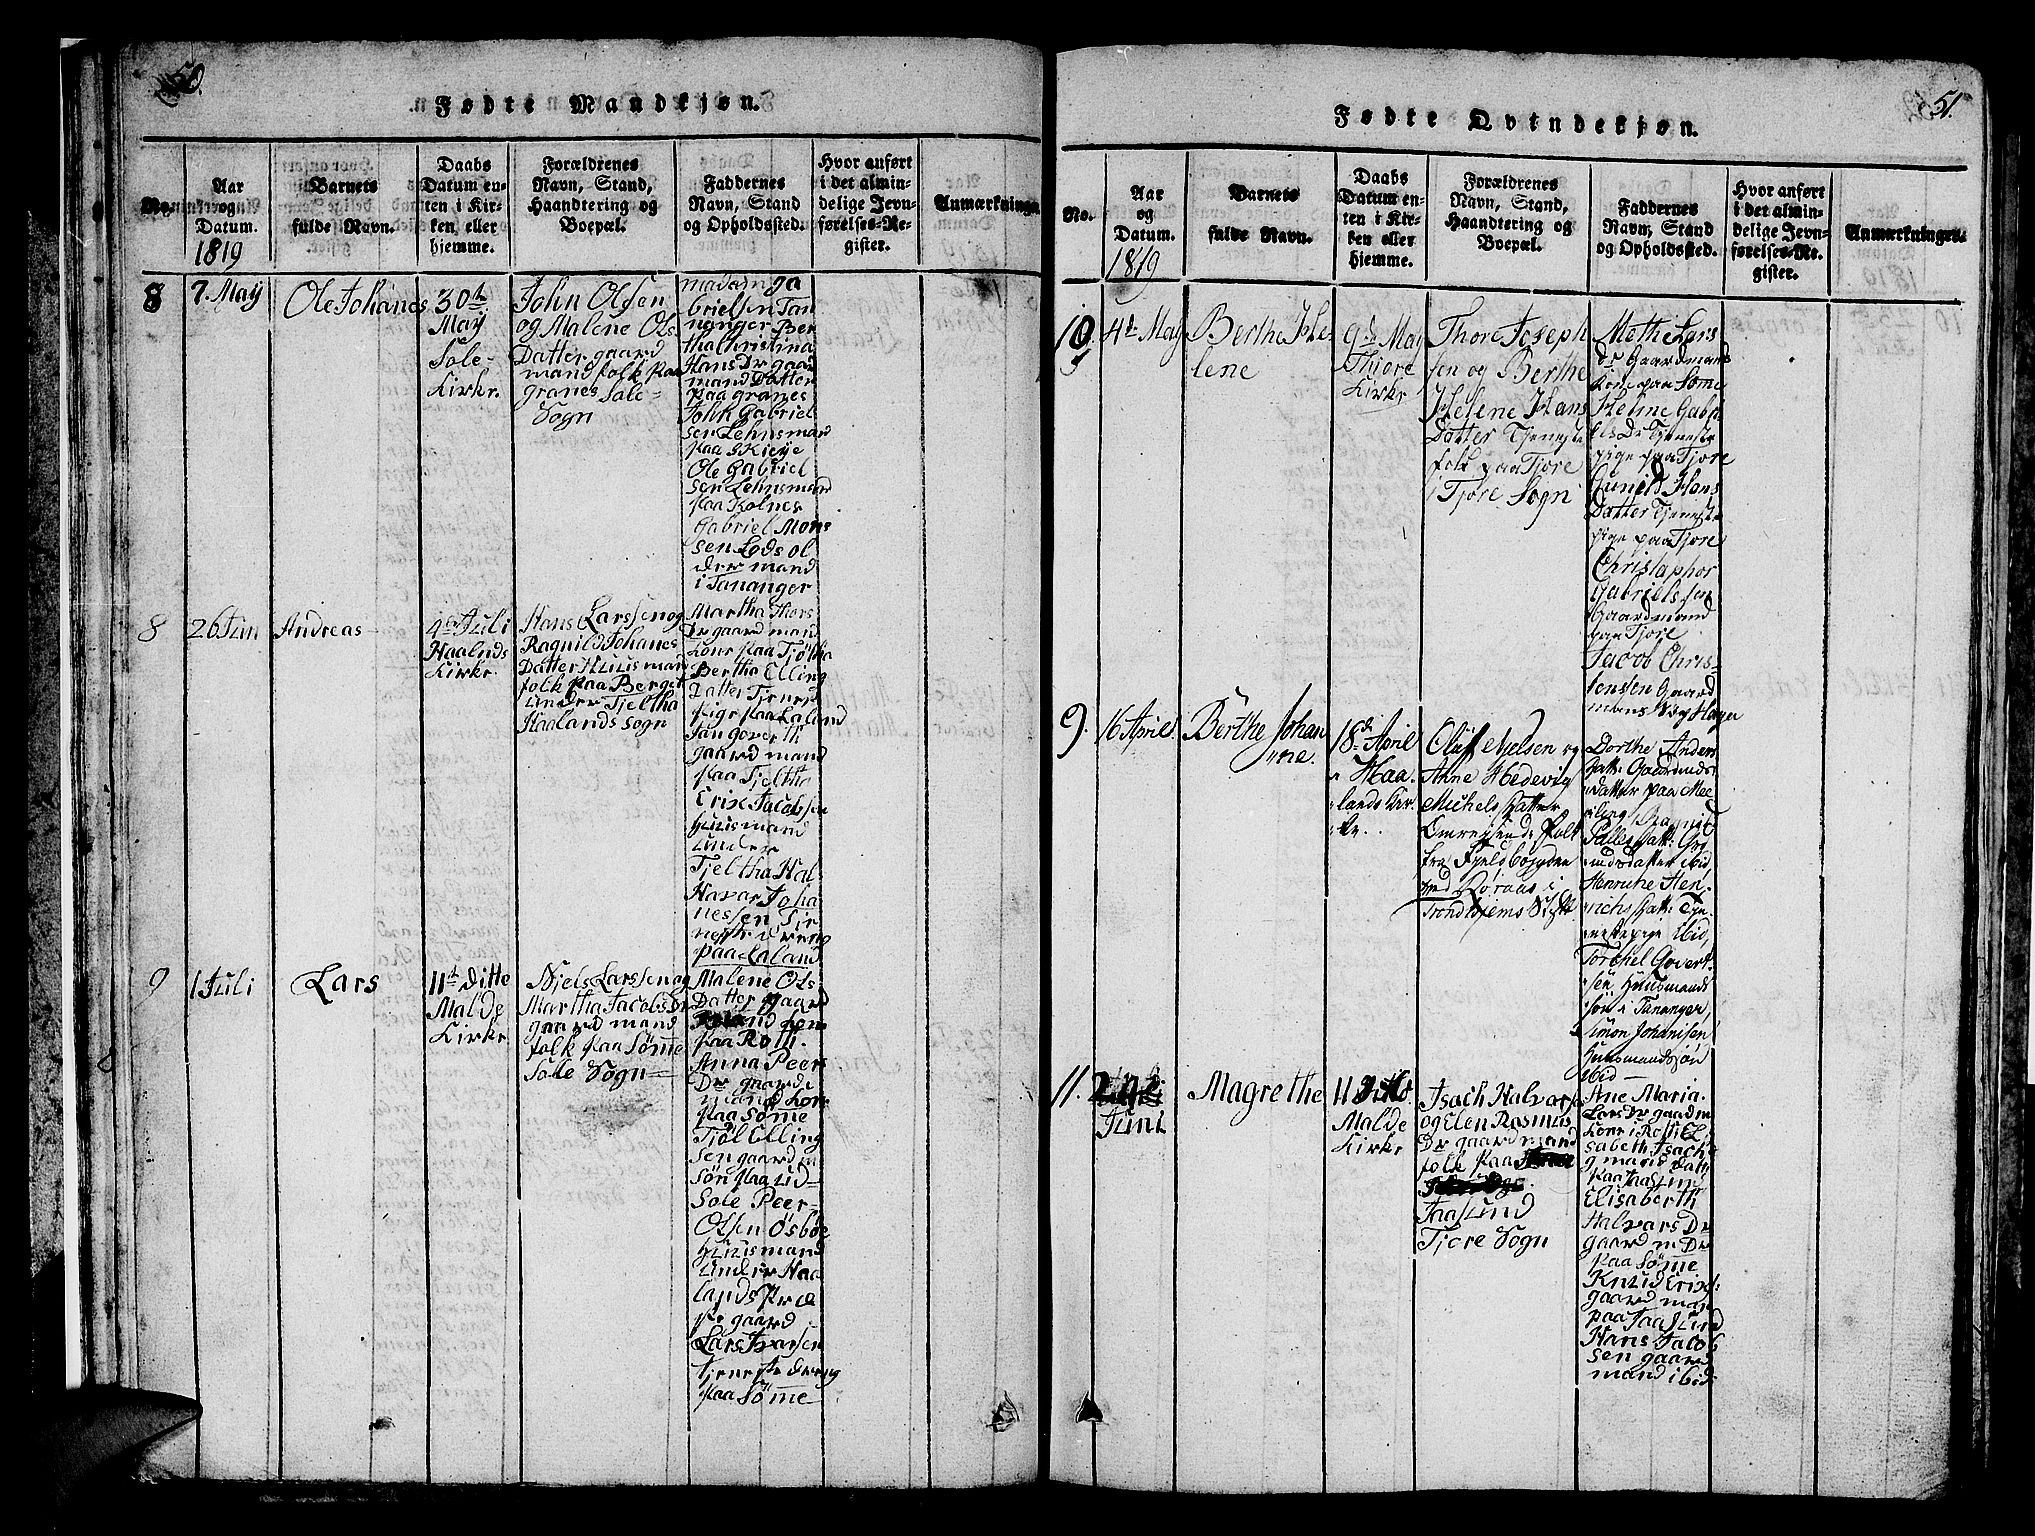 50.
Fødte Mandkjøn.
Aar
og
Datum.
1819
Barnets
fulde Navn.
Daabs
Datum en-
ten i Kir-
ken, eller
hjemme.
Forældrenes
Navn, Stand,
Haandtering og
Boepæl.
Faddernes
Navn, Stand
og Opholdssted.
Hvor anført
i det almin-
delige Jevn-
førelses-Re-
gister.
Anmærkninge
8
7. Maÿ
Ole Johanes
30te
Maÿ
Sole-
Kirke.
John Olsen
og Malene Ols
Datter gaard
mand folk paa
granes Sole-
Sogn
madam ga
brielsen Tan
nanger Ber
tha Christina
Hans Dr gaar
mand Datter
paa granes
John Gabriel
sen Lehnsmand
paa Skieÿe
Ole Gabriel
sen Lehnsmand
paa Kolnes
Gabriel Mons
sen Lods ol
der mand
i Tananger
8
26 Jun
Andreas
4de Juli
Haalnds
Kirke.
Hans Larssen og
Ragnild Johanes
Datter Huusmand
folk paa Berget
under Tjeltha
Haalands sogn
Martha Thors
Dr gaard mand
Kone paa Tjötha
Bertha Elling
Datter Tjenest
Pige paa Laland
Jan goverth
gaard mand
paa Tjeltha
Erix Jacobsen
Huusmand
under
Tjeltha Hal
Havar Joha
nessen Tje
neste dreng
paa Laland
9
1 Juli
Lars
11te ditte
Malde
Kirke
Njels Larssen og
Martha Jacobs Dr
gaard mand
folk paa Sömme
Sole Sogn
Malene Ols
Datter gaard
mand kone
paa Rott.
Anna Peers
Dr gaard
mand kone
paa Sömme
Tjöl Elling
sen gaard m
sön paa ud-
Sole Peer-
Olsen Ösböe
Huusmand
under Haa
lands Præ
ste gaard
Lars Ivarsen
tjeneste dreng
paa Sömme
51.
Fødte Qvindekjøn.
No.
Aar
og
Datum.
1819
Barnets
fulde Navn.
Daabs
Datum en-
ten i Kir-
ken eller
hjemme.
Forældrenes
Navn, Stand,
Haandtering og
Boepæl.
Faddernes
Navn, Stand
og Opholdssted.
Hvor anført
i det almin-
delige Jevn-
førelses-Re-
gister.
Anmærkninger.
10.
4de May
Berthe He
lene
9de May
Thjore
Kirke
Thore Joseph
sen og Berthe
Helene Hans
Datter Tjeneste
folk paa Tjore
i Tjore Sogn
Methe Lars
Dr Gaardmand
kone paa Sømme
Helene Gabri
els Dr Tjeneste
pige paa Tjore
Guneld Hans
Datter Tjeneste
pige paa Tjore
Christophor
Gabrielssen
Gaardmand
paa Tjore
Jacob Chris-
tensen Gaard
9.
16 April.
Berthe Johan
ne.
18de April
i Haa
lands Kir
ke.
Oluf Nielsen og
Ahne Hedevig
Michels Datter
Omreisende Folk
fra Fjeldbøygden
ved Röraas i
Trondhjems Stift
Dorthe Anders
Datt: Gaardmands
datter paa Mee
ling, Ragnil
ndsdatter ibid
Henriche Hen
richs Datt: Tje-
nestepige ibid,
Torchel Govert
sen Huusmands
sön i Tananger,
Simon Johansen
Huusmandssön
ibid
11.
Juni
Magrethe
11 ditto.
Malde
Kirke
Isach Halvorse
og Elen Rasmus
Dr gaard mand
folk paa
Jaasund
Tjore Sogn
Ane Maria
Lars Dr gaard m
kone i Rott El
sabeth Isachs
g mand Datt
paa Jaasund
Elisaberth
Halvars Dr
gaard m Dr
paa Sömme
Knud Erix-
gaard man
paa Jaasund
Hans Jacob
sen gaard
mand ibid